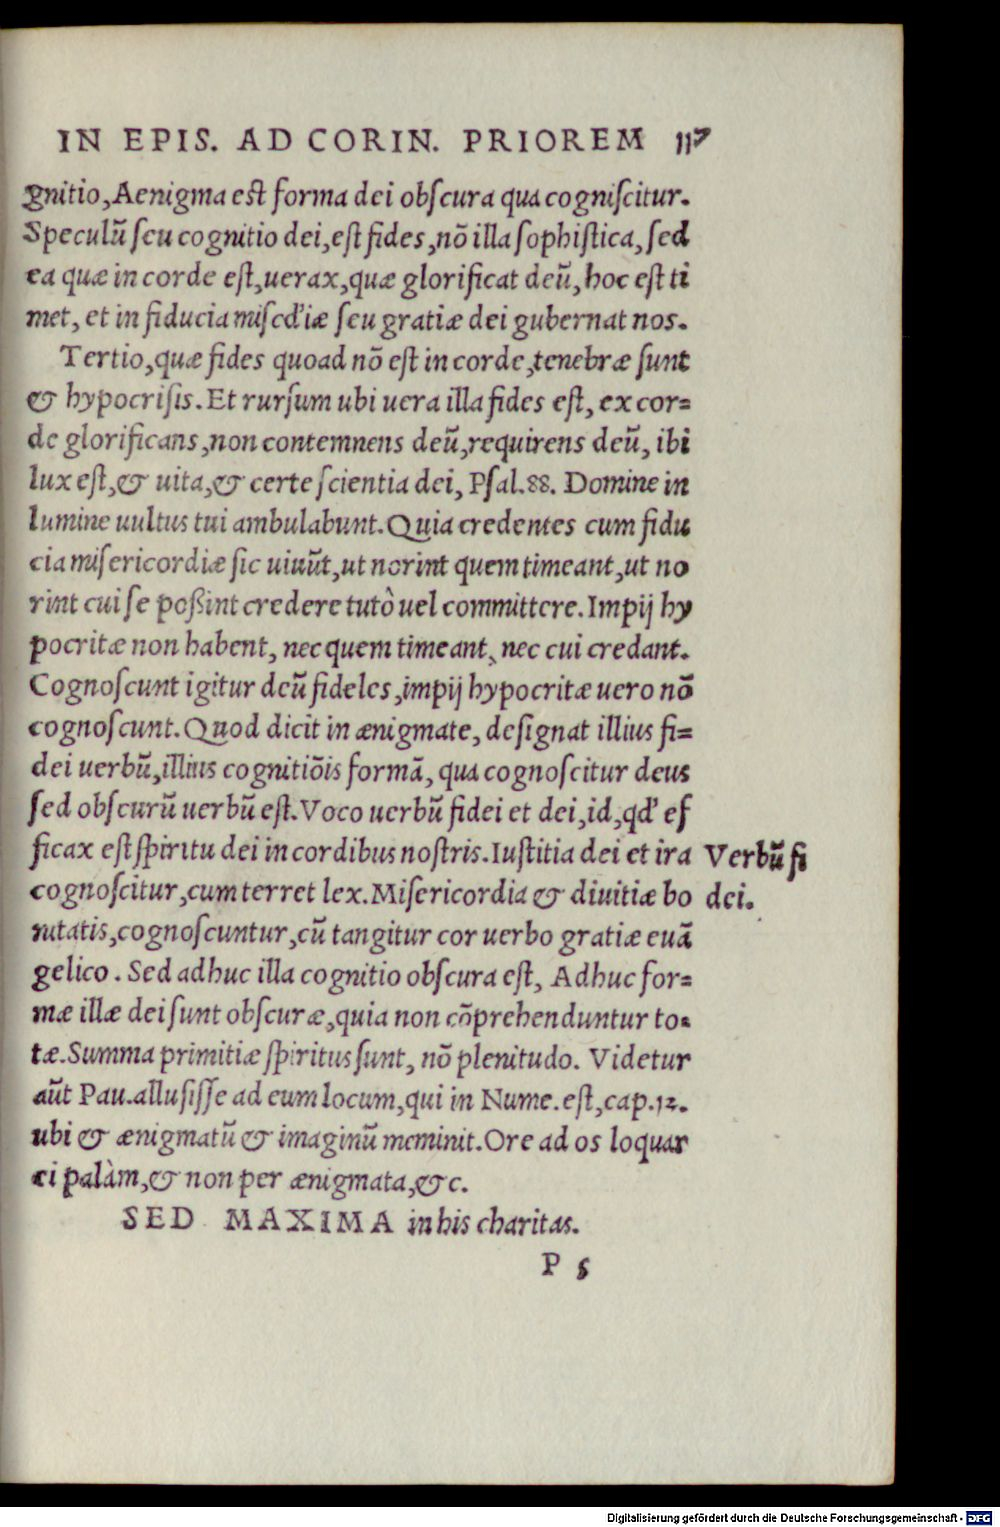 IN EPIS. AD CORIN. PRIOREM 117
gnitio, Aenigma est forma dei obſcura qua cogniſcitur.
Speculũ ſeu cognitio dei, eſt fides, nõ illa ſophiſtica, ſed
ea quæ in corde eſt, uerax, quæ glorificat deũ, hoc eſt ti
met, et in fiducia miſcd'iæ ſeu gratiæ dei gubernat nos.
Tertio, quæ fides quoad nõ eſt in corde, tenebræ ſunt
& hypocriſis. Et rurſum ubi uera illa fides eſt, ex cor=
de glorificans, non contemnens deũ, requirens deũ, ibi
lux eſt, & uita, & certe ſcientia dei, Pſal. 88. Domine in
lumine uultus tui ambulabunt. Quia credentes cum fidu
cia miſericordiæ ſic uiuũt, ut norint quem timeant, ut no
rint cui ſe poßint credere tutò uel committere. Impij hy
pocritæ non habent, nec quem timeant, nec cui credant.
Cognoſcunt igitur deũ fideles, impij hypocritæ uero nõ
cognoſcunt. Quod dicit in ænigmate, deſignat illius fi=
dei uerbũ, illius cognitiõis formã, qua cognoſcitur deus
ſed obſcurũ uerbũ eſt. Voco uerbũ fidei et dei, id, qd' ef
ficax eſt ſpiritu dei in cordibus noſtris. Iuſtitia dei et ira
cognoſcitur, cum terret lex. Miſericordia & diuitiæ bo
nitatis, cognoſcuntur, cũ tangitur cor uerbo gratiæ euã
gelico. Sed adhuc illa cognitio obſcura eſt, Adhuc for=
mæ illæ dei ſunt obſcuræ, quia non cõprehenduntur to=
tæ. Summa primitiæ ſpiritus ſunt, nõ plenitudo. Videtur
aũt Pau. alluſiſſe ad eum locum, qui in Nume. eſt, cap. 12.
ubi & ænigmatũ & imaginũ meminit. Ore ad os loquar
ei palàm, & non per ænigmata, &c.
SED MAXIMA in his charitas.
P 5
Verbũ fi
dei.
Digitalisierung gefördert durch die Deutsche Forschungsgemeinschaft - DFG